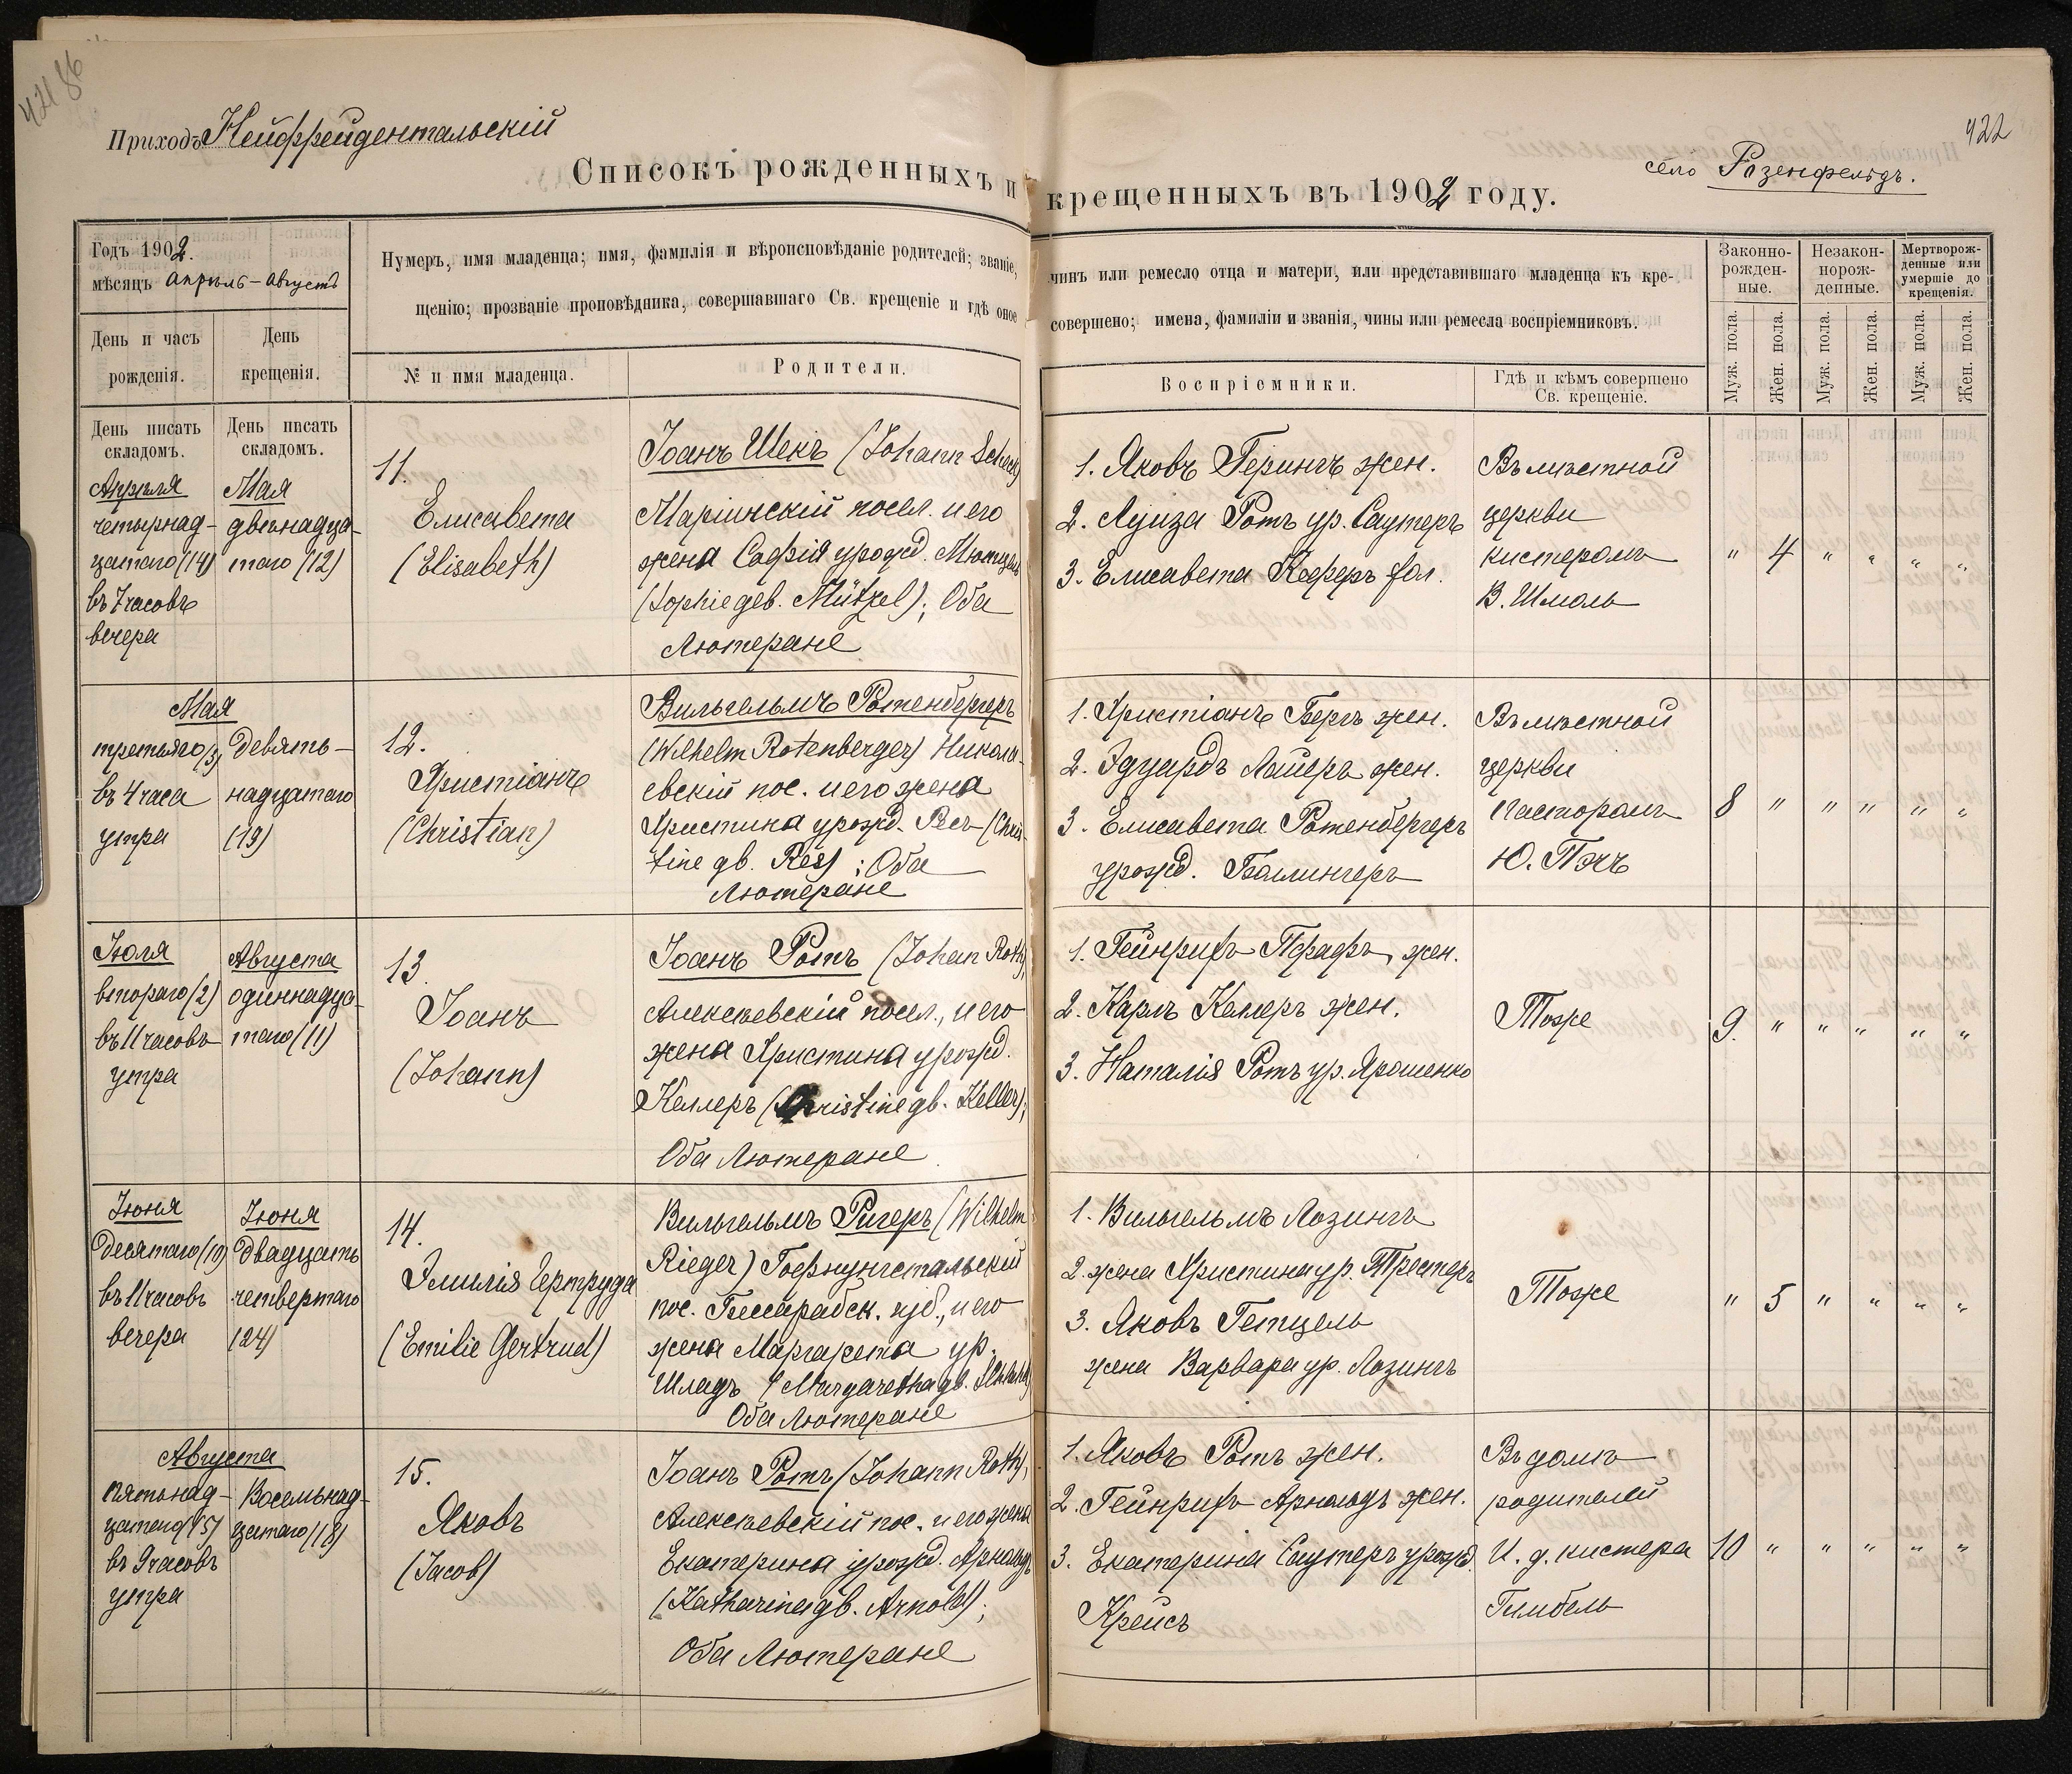 421 86
422
Приходъ Нейфрейдентальскій
село Розенфельдъ.
Списокъ рожденныхъ и крещенныхъ въ 1902 году.
Годъ 1902.
мѣсяцъ апрѣль – августъ
День и часъ рожденія.
День крещенія.
Нумеръ, имя младенца; имя, фамилія и вѣроисповѣданіе родителей; званіе, чинъ или ремесло отца и матери, или представившаго младенца къ кре-
щенію; прозваніе проповѣдника, совершавшаго Св. крещеніе и гдѣ оное совершено; имена, фамиліи и званія, чины или ремесла воспріемниковъ.
№ и имя младенца.
Родители.
Воспріемники.
Гдѣ и кѣмъ совершено
Св. крещеніе.
Законно-
рожден-
ные.
Незакон-
норож-
денные.
Мертворож-
денные или
умершіе до
крещенія.
Муж. пола.
Жен. пола.
Муж. пола.
Жен. пола.
Муж. пола.
Жен. пола.
День писать
складомъ.
День писать
складомъ.
Апрѣля
четырнад-
цатаго (14)
въ 7 часовъ
вечера
Мая
двѣнадца-
таго (12)
11.
Елисавета
(Elisabeth)
Іоанъ Шекъ (Johann Scheck)
Маріинскій посел. и его
жена Софія урожд. Мютцель
(Sophie geb. Mützel); Оба
Лютеране
1. Яковъ Герингъ жен.
2. Луиза Ротъ ур. Саутеръ
3. Елисавета Кеферъ
Въ мѣстной
церкви
кистеромъ
В. Шмоль
" 4 " " " "
Мая
третьяго (3)
въ 4 часа
утра
девять-
надцатаго
(19)
12.
Христіанъ
(Christian)
Вильгельмъ Ротенбергеръ
(Wilhelm Rotenberger) Никола-
евскій пос. и его жена
Христина урожд. Ресъ (Chris-
tine gb. Res); Оба
Лютеране
1. Христіанъ Бергъ жен.
2. Эдуардъ Лайеръ жен.
3. Елисавета Ротенбергеръ
урожд. Болингеръ
Въ мѣстной
церкви
Пасторомъ
Ю. Пэчъ
8 " " " " "
Іюля
второго (2)
въ 11 часовъ
утра
Августа
одиннадца-
таго (11)
13.
Іоанъ
(Johann)
Іоанъ Ротъ (Johan Roth),
Алексѣевскій посел., и его
жена Христина урожд.
Келлеръ (Christine gb. Keller);
Оба Лютеране
1. Гейнрихъ Пфафъ, жен.
2. Карлъ Келеръ жен.
3. Наталія Ротъ ур. Ярошенко
Тоже
9. " " " " "
Іюня
десятаго (10)
въ 11 часовъ
вечера
Іюня
двадцать
четвертаго
(24)
14.
Эмилія Гертруда
(Emilie Gertrud)
Вильгельмъ Ригеръ (Wilhelm
Rieger) Гофнунгстальскій
пос. Бессарабск. губ., и его
жена Маргарета ур.
Шладъ (Margaretha gb.
Оба Лютеране
1. Вильгельмъ Лозингъ
2. жена Христина ур. Трестеръ
3. Яковъ Гетцель
жена Варвара ур. Лозингъ
Тоже
" 5 " " " "
Августа
пятьнад-
цатаго (15)
въ 9 часовъ
утра
Восемьнад-
цатаго (18)
15.
Яковъ
(Jacob)
Іоанъ Ротъ (Johann Roth),
Алексѣевскій пос. и его жена
Екатерина урожд. Арнольдъ
(Katharina gb. Arnold);
Оба Лютеране
1. Яковъ Ротъ жен.
2. Гейнрихъ Арнольдъ жен.
3. Екатерина Саутеръ урожд.
Крейсъ
Въ домѣ
родителей
И. д. кистера
Гимбель
10 " " " " "